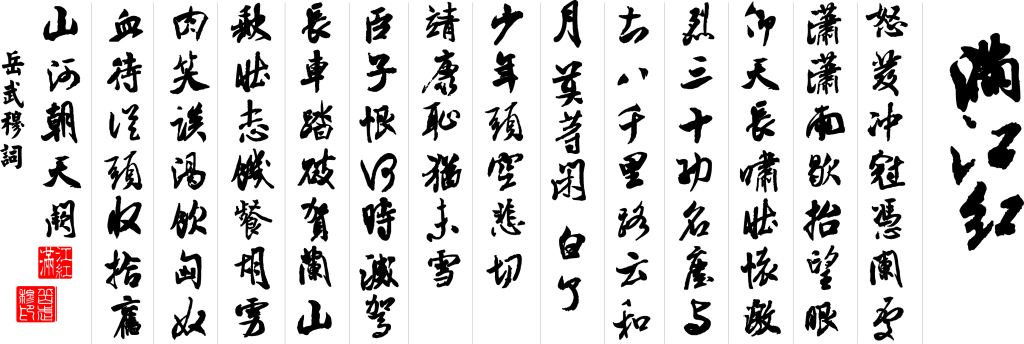 滿江紅
怒發冲冠憑闌處
瀟瀟雨歇抬望眼
仰天長嘯壯懷激
烈三十功名塵与
土八千里路云和
月莫等閑白了
少年頭空悲切
靖康恥猶未雪
臣子恨何時滅駕
長車踏破賀蘭山
缺壯志饑餐胡虜
肉笑談渴飲匈奴
血待從頭收拾舊
山河朝天闕
岳武穆詞
江紅
滿